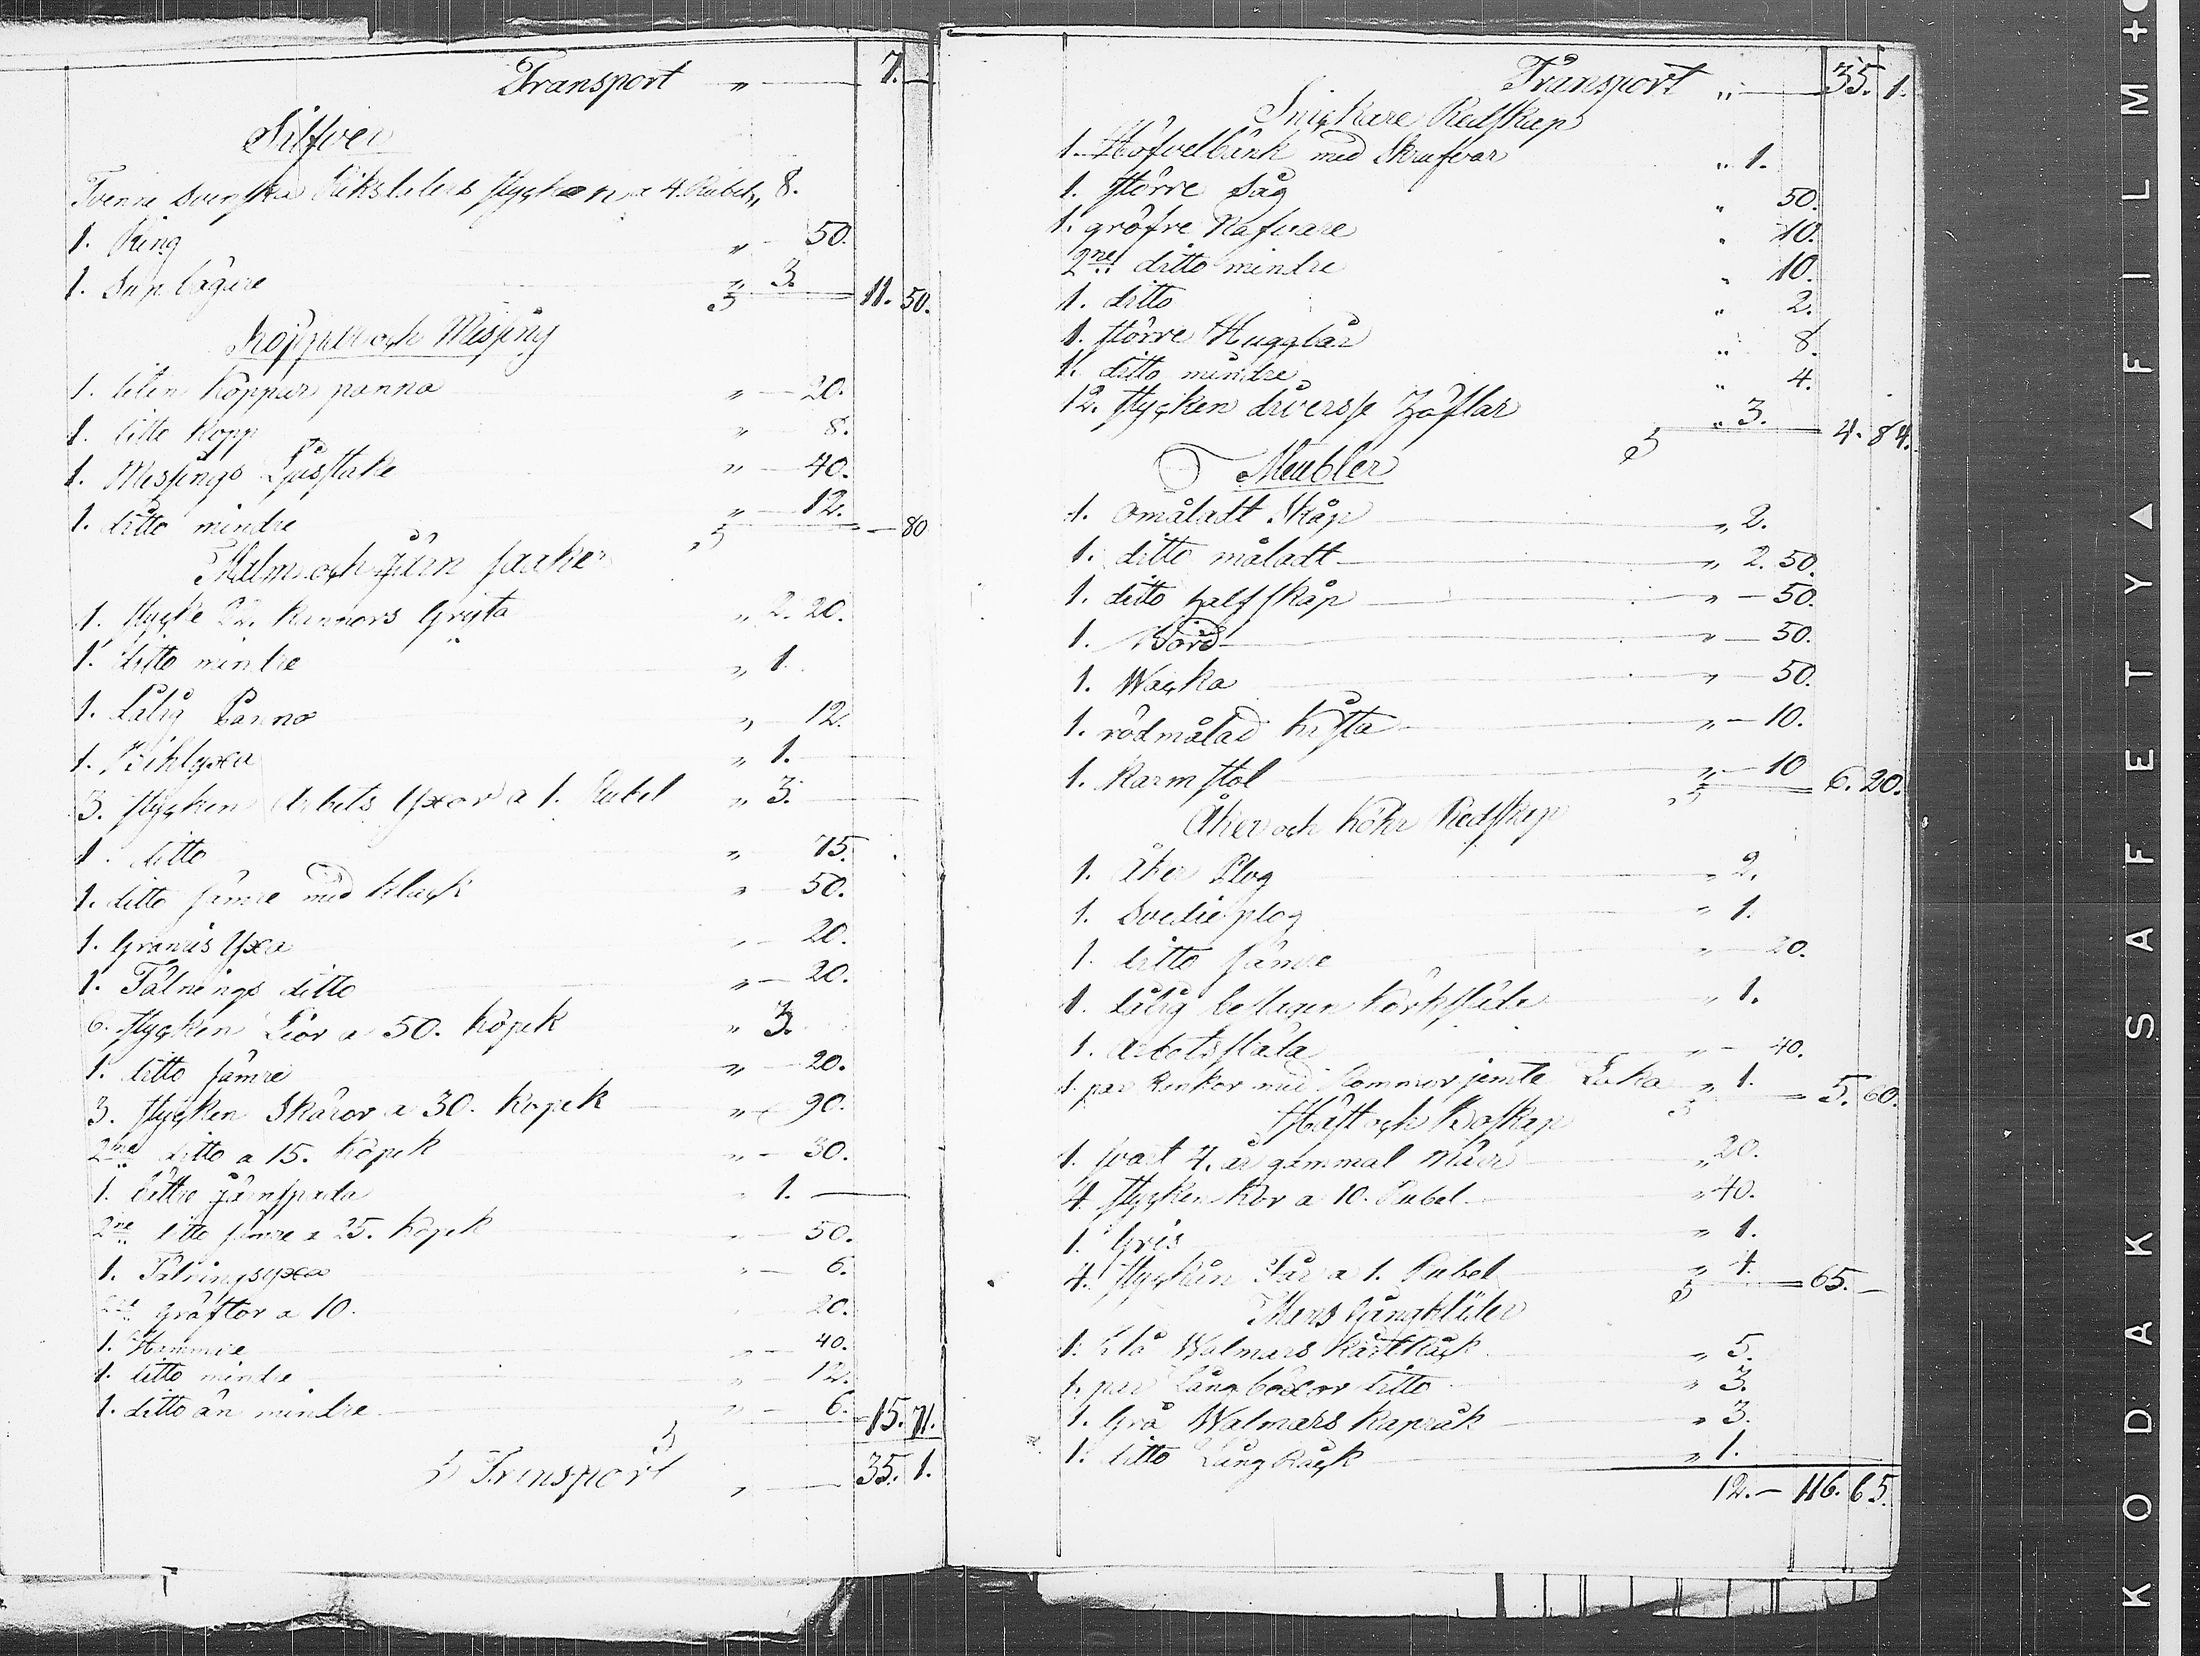 Transport " — 7. —
Silfver
Tvenne Svenska Riksdalers stycken a 4 Rubel " 8.
1. Ring " — 50.
1. Supbägare " 3. 11. 50.
Koppar och Messing
1. liten koppar panna " — 20.
1. ditto kopp " — 8.
1. Messings Ljusstake " — 40.
1. ditto mindre " — 12. — 80
Malm och Järn saker
1. stycke 22. kannors Gryta " 2. 20.
1. ditto mindre " 1.
1. dålig Panna " — 12.
1. Bihlyxa " 1. —
3. stycken Arbets Yxor a 1. Rubel " 3. —
1. ditto " — 75.
1. ditto sämre med klack " — 50.
1. Granris Yxa " — 20.
1. Tälnings ditto " — 20.
6. stycken Liar a 50. kopek " 3.
1. ditto sämre " — 20.
3. stycken Skäror a 30. kopek " — 90.
2ne ditto a 15. kopek " — 30.
1. bättre järnspada " 1. —
2ne ditto sämre a 25. kopek " — 50.
1. Tälningsyxa " — 6.
2ne gräftor a 10. " — 20.
1. Hammare " — 40.
1. ditto mindre " — 12.
1. ditto än mindre " — 6. 15. 71.
Transport " — 35. 1.
Transport " — 35. 1.
Snickare Redskap
1. Höfvelbänk med Skrufvar " 1.
1. större Såg " 50.
1. gröfre Nafvare " 10.
2ne ditto mindre " 10.
1. ditto " 2.
1. större Huggjärn " 8.
1. ditto mindre " 4.
12. stycken diverse Höflar " 3. 4. 84.
Meubler
1. omåladt Skåp " 2.
1. ditto måladt " 2. 50.
1. ditto halfskåp " — 50.
1. Bord " — 50.
1. Wagka " — 50.
1. rödmålad kista " — 10.
1. Karmstol " — 10 6. 20.
Åker och Köhr Redskap
1. Åker Plog " 2.
1. Svedieplog " 1.
1. ditto sämre " — 20.
1. dålig beslagen körksläde " 1.
1. arbetssläda " — 40.
1. par Rankor med Lommor jemte Loka " 1. 5. 60.
Häst och Boskap
1. svart 4. år gammal Märr " 20.
4. stycken Kor a 10. Rubel " 40.
1. Gris " 1.
4. stycken Får a 1. Rubel " 4. 65. —
Mans Gångkläder
1. blå Walmars " 5.
1. par Långböxor ditto " 3.
1. Grå Walmars Kapråk " 3.
1. ditto Lång Råck " 1.
12. — 116. 65.
KODAK SAFETY ▲ FILM +